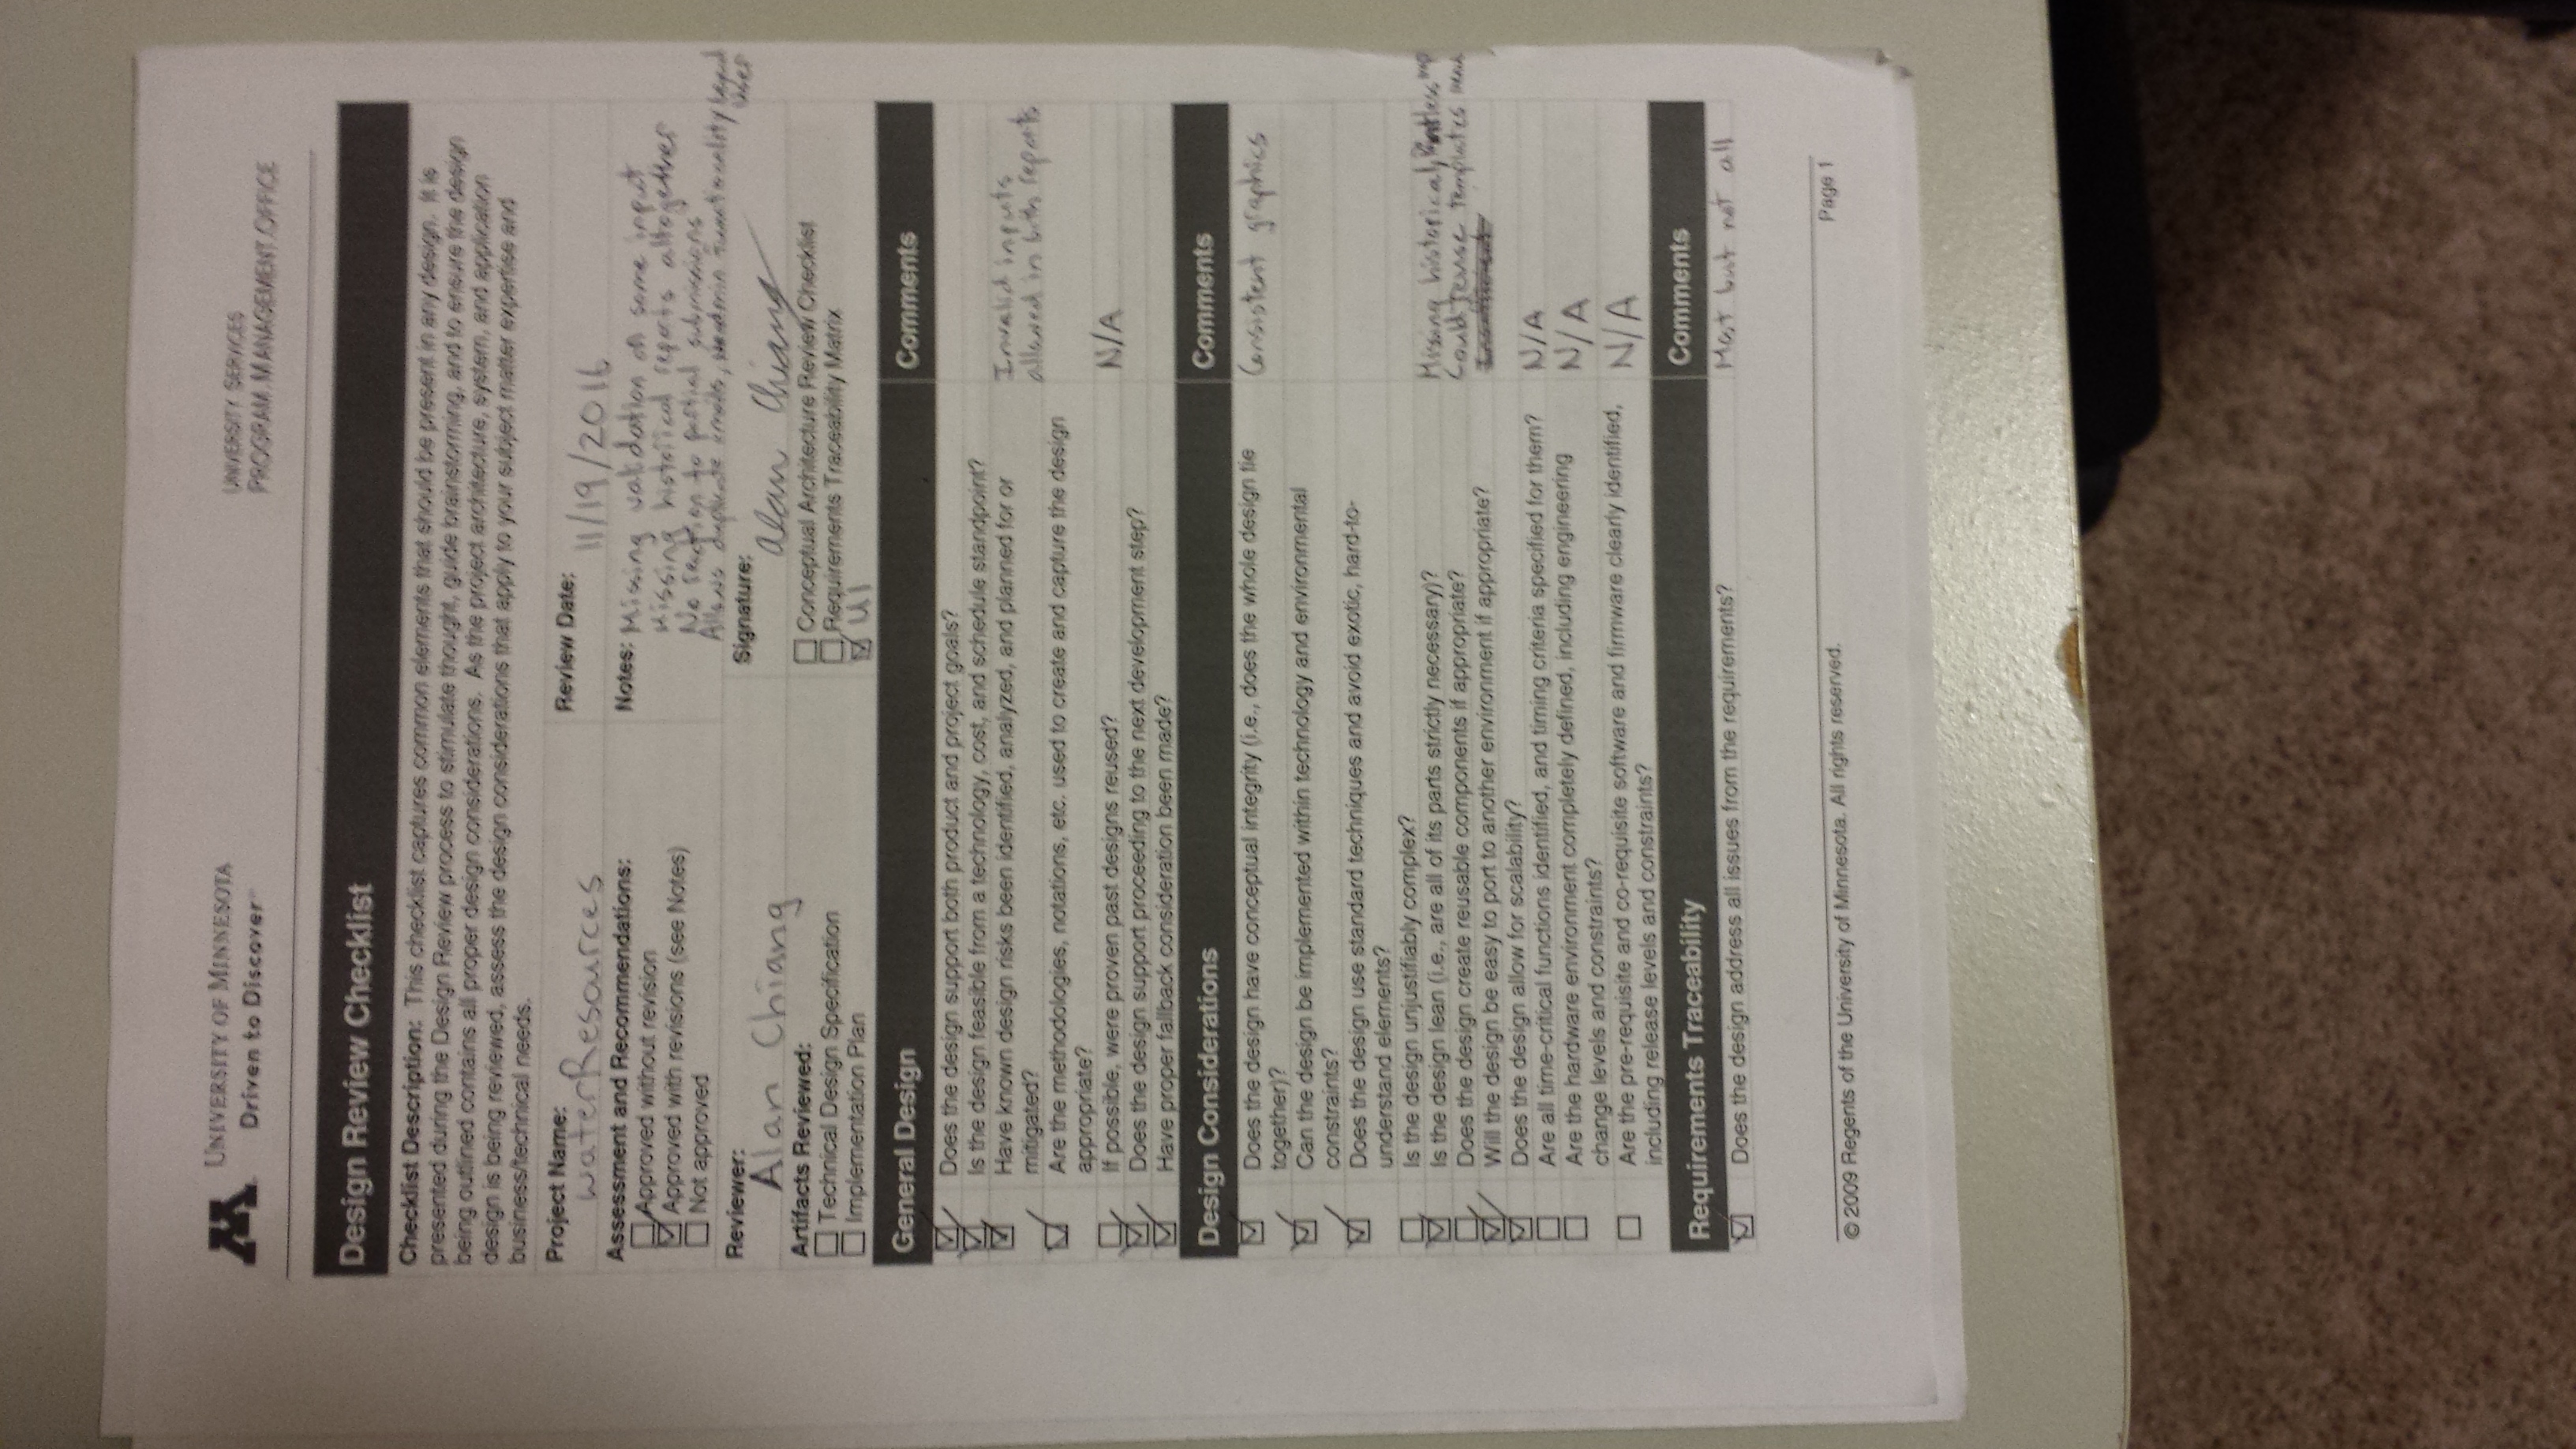 UNIVERSITY OF MINNESOTA
Driven to Discover
UNIVERSITY SERVICES
PROGRAM MANAGEMENT OFFICE
Design Review Checklist
Checklist Description: This checklist captures common elements that should be present in any design. It is
presented during the Design Review process to stimulate thought, guide brainstorming, and to ensure the design
being outlined contains all proper design considerations. As the project architecture, system, and application
design is being reviewed, assess the design considerations that apply to your subject matter expertise and
business/technical needs.
Project Name:
waterResources
Review Date: 11/19/2016
Assessment and Recommendations:
Approved without revision
Approved with revisions (see Notes)
Not approved
Notes: Missing validation on some input
Missing historical reports altogether
No reaction to partial submissions
Allows duplicate emails, functionality beyond
user
Reviewer:
Alan Chiang
Signature:
Alan Chiang
Artifacts Reviewed:
Technical Design Specification
Implementation Plan
Conceptual Architecture Review Checklist
Requirements Traceability Matrix
UI
General Design Comments
Does the design support both product and project goals?
Is the design feasible from a technology, cost, and schedule standpoint?
Have known design risks been identified, analyzed, and planned for or Invalid inputs
mitigated? allowed in both reports
Are the methodologies, notations, etc. used to create and capture the design
appropriate?
If possible, were proven past designs reused? N/A
Does the design support proceeding to the next development step?
Have proper fallback consideration been made?
Design Considerations Comments
Does the design have conceptual integrity (i.e., does the whole design tie Consistent graphics
together)?
Can the design be implemented within technology and environmental
constraints?
Does the design use standard techniques and avoid exotic, hard-to-
understand elements?
Is the design unjustifiably complex?
Is the design lean (i.e., are all of its parts strictly necessary)? Missing historical, map
Does the design create reusable components if appropriate? Could reuse templates
Will the design be easy to port to another environment if appropriate?
Does the design allow for scalability?
Are all time-critical functions identified, and timing criteria specified for them? N/A
Are the hardware environment completely defined, including engineering N/A
change levels and constraints?
Are the pre-requisite and co-requisite software and firmware clearly identified, N/A
including release levels and constraints?
Requirements Traceability Comments
Does the design address all issues from the requirements? Most but not all
© 2009 Regents of the University of Minnesota. All rights reserved. Page 1